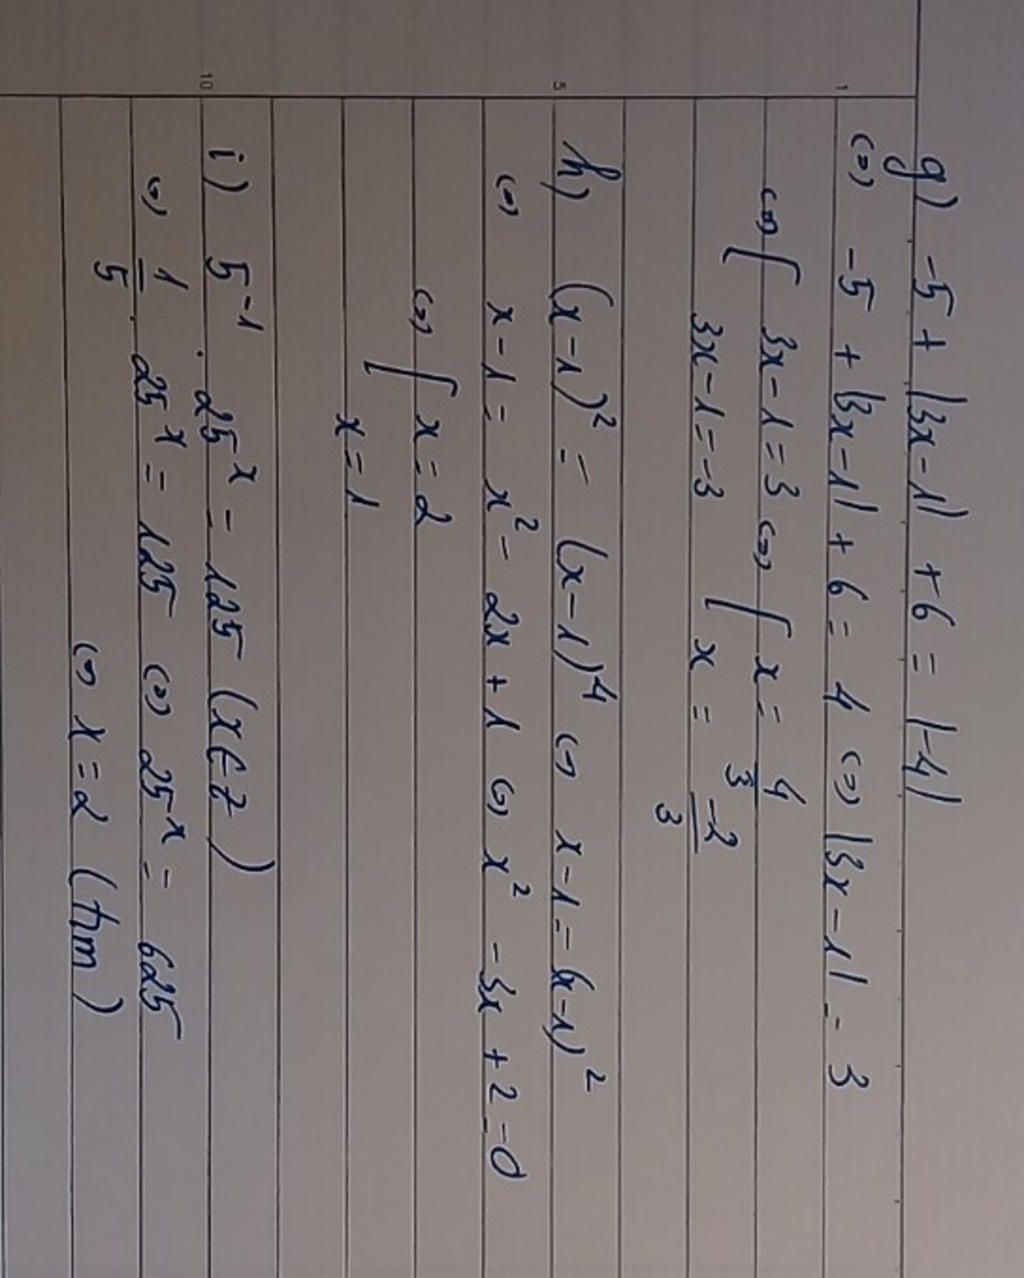 g) -5 + |3x-1| + 6 = |-4|
1 <=> -5 + |3x-1| + 6 = 4 <=> |3x-1| = 3
<=> [ 3x-1 = 3 <=> [ x = 4/3
3x-1 = -3 x = -2/3
5 h) (x-1)² = (x-1)⁴ <=> x-1 = (x-1)²
<=> x-1 = x² - 2x + 1 <=> x² - 3x + 2 = 0
<=> [ x = 2
x = 1
10 i) 5⁻¹ . 25ˣ = 125 (x ∈ Z)
<=> 1/5 . 25ˣ = 125 <=> 25ˣ = 625
<=> x = 2 (tm)